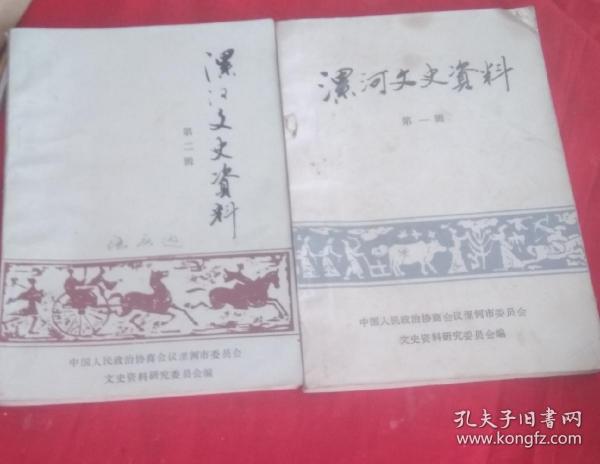 漯河文史资料
第二辑
中国人民政治协商会议漯河市委员会
文史资料研究委员会编
漯河文史资料
第一辑
中国人民政治协商会议漯河市委员会
文史资料研究委员会编
孔夫子旧书网
www.kongfz.com